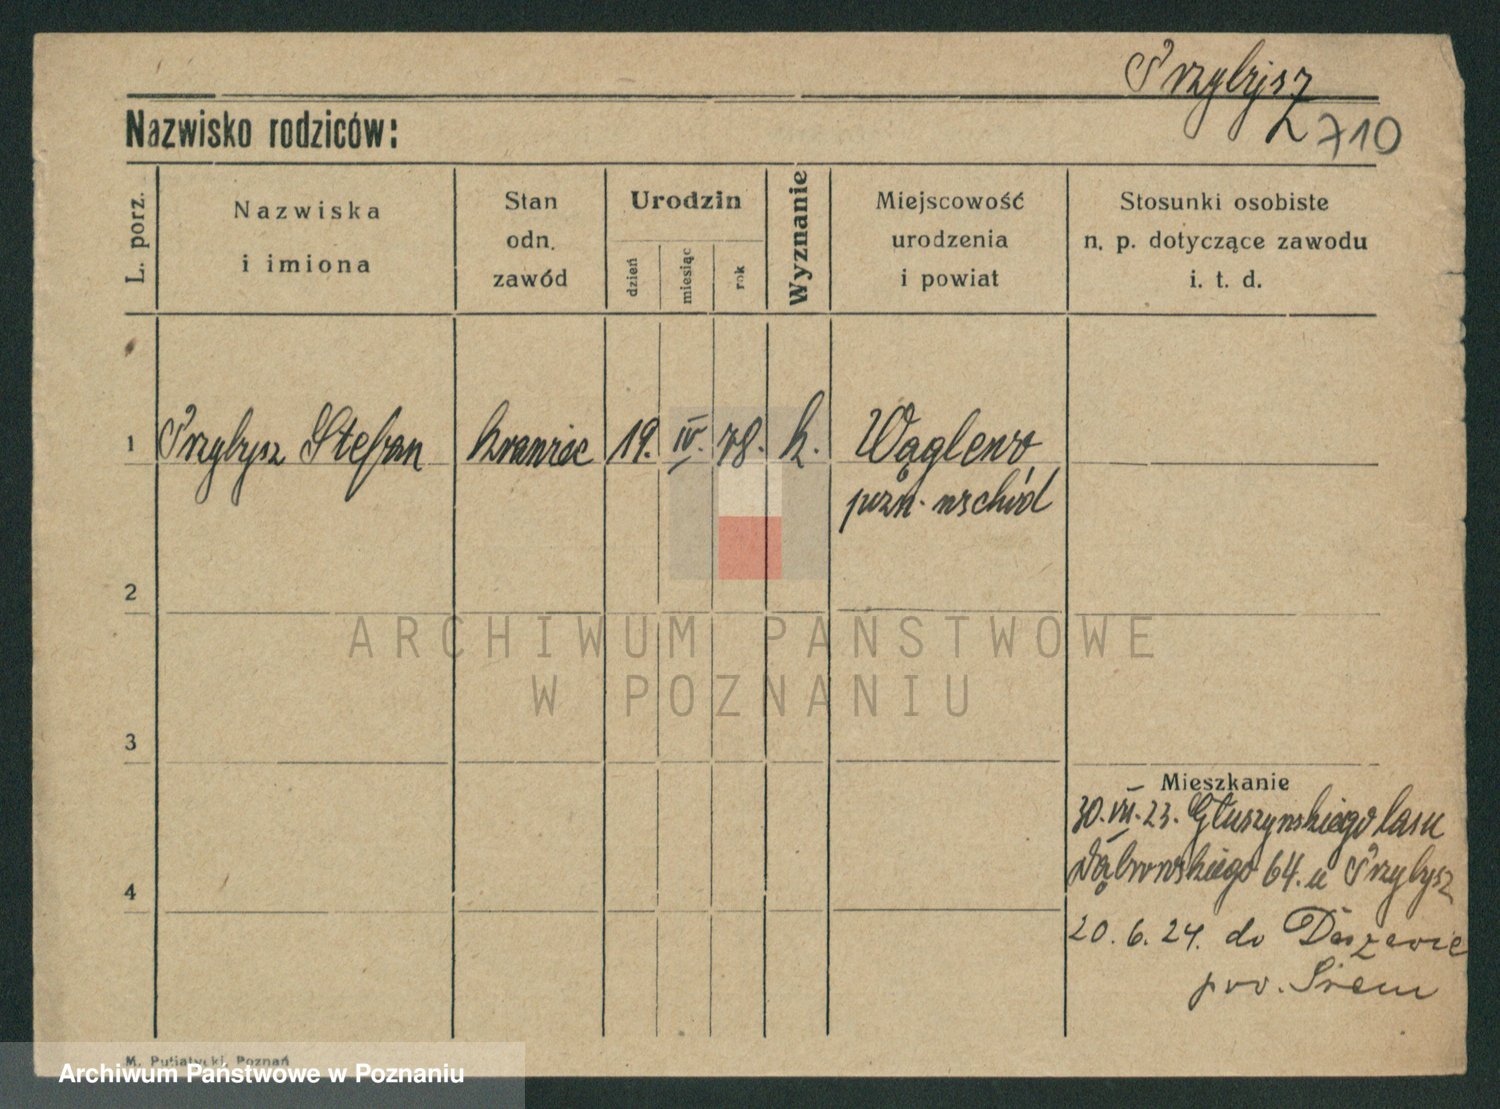 Przybysz
710
Nazwisko rodziców:
L. porz.
Nazwiska
i imiona
Stan
odn.
zawód
Urodzin
dzień
miesiąc
rok
Wyznanie
Miejscowość
urodzenia
i powiat
Stosunki osobiste
n. p. dotyczące zawodu
i. t. d.
1 Przybysz Stefan krawiec 19. IV. 78. k. Wąglewo
pozn. wschód
2
ARCHIWUM PAŃSTWOWE
W POZNANIU
3
Mieszkanie
30.VII.23. Głuszynskiego lasu
Dąbrowskiego 64. u Przybysz
4
20.6.24. do Daszewic
pow. Śrem
M. Putiatycki, Poznań
Archiwum Państwowe w Poznaniu